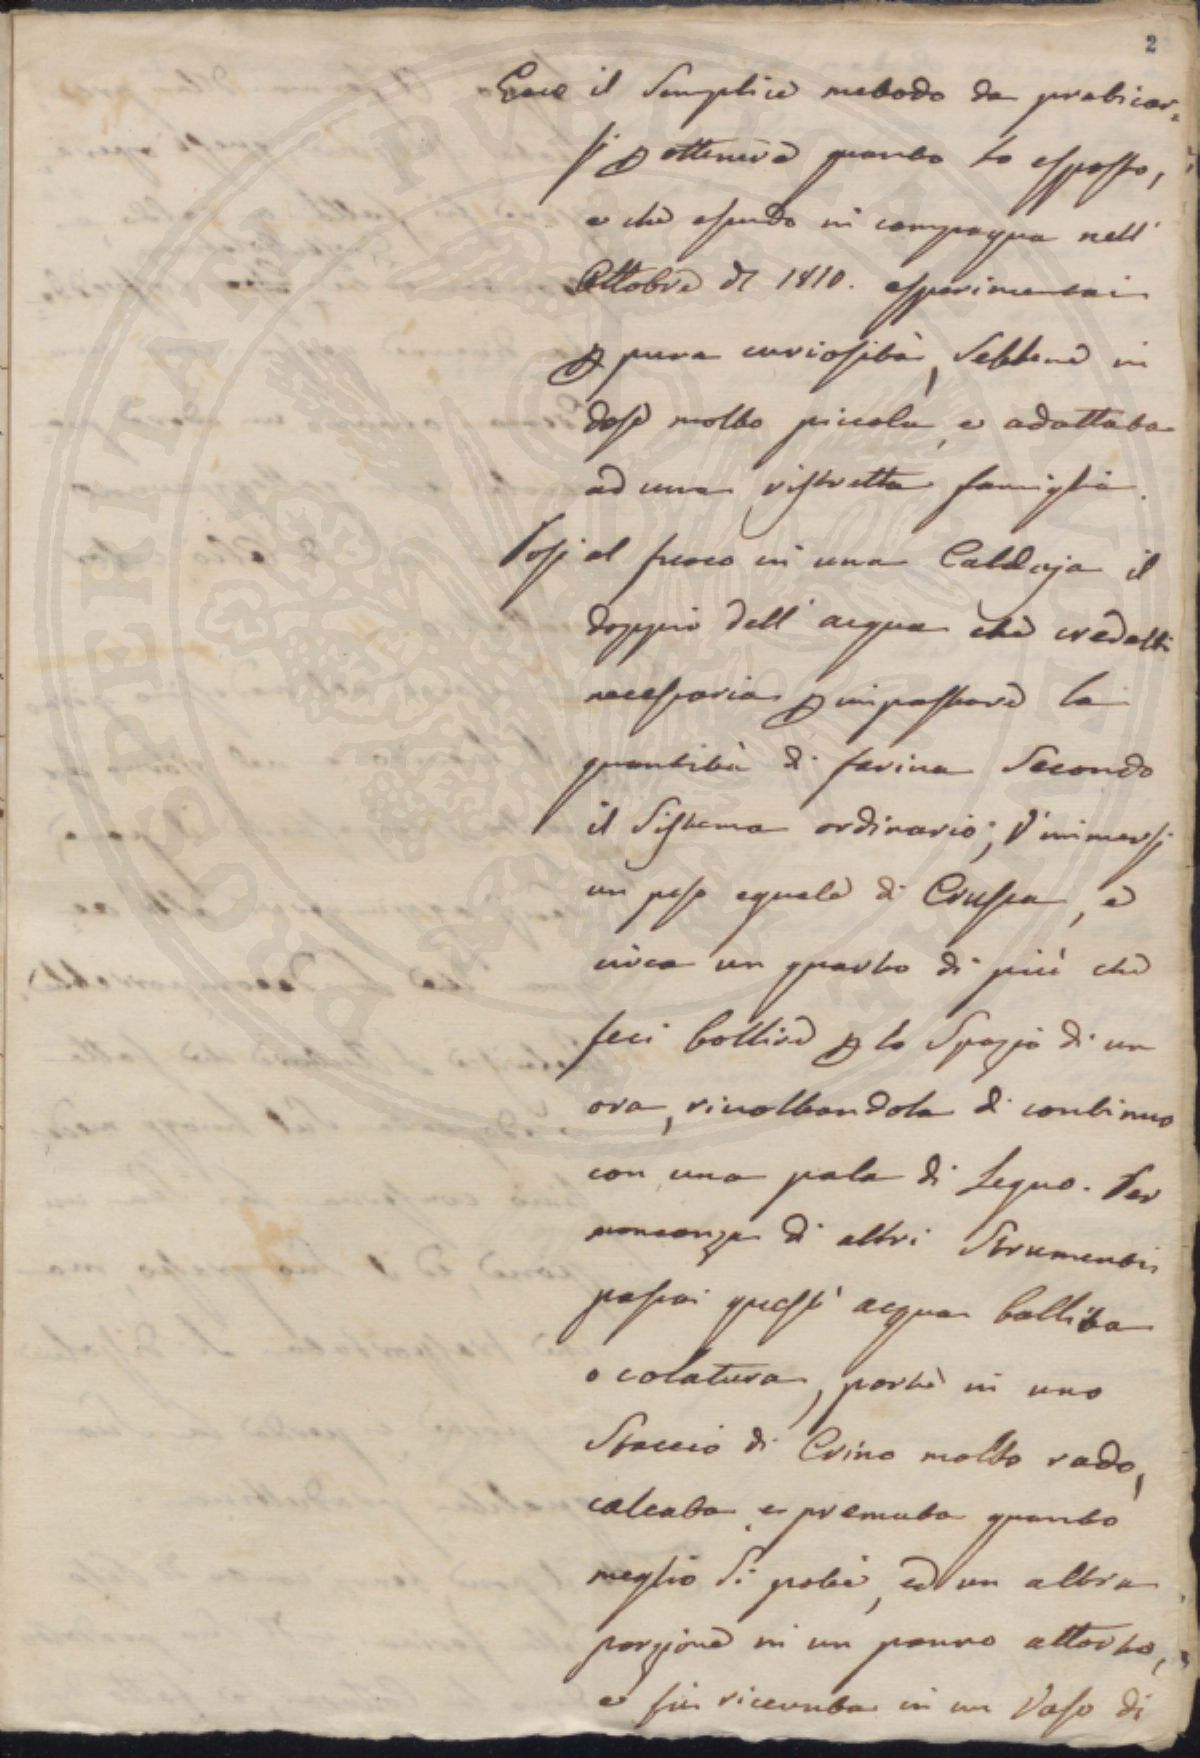 2
Ecco il Semplice metodo da praticar=
si p ottenere quanto ho esposto,
e che essendo in campagna nell'
Ottobre del 1810. esperimentai
p pura curiosità, Sebbene in
dose molto piccola, e adattata
ad una ristretta famiglia.
Posi al fuoco in una Caldaja il
doppio dell'acqua che credetti
necessaria p impastare la
quantità di farina Secondo
il Sistema ordinario; V'immersi
un peso eguale di Crusca, e
circa un quarto di più che
feci bollire p lo Spazio di un
ora, rivoltandola di continuo
con una pala di Legno. Per
mancanza di altri Strumenti
passai quest'acqua bollita
o colatura, parte in uno
Staccio di Crino molto rado,
calcata e premuta quanto
meglio Si potè, ed un altra
porzione in un panno attorto,
e fu ricevuta in un Vaso di
PROSPERITATI PVBLICAE AVGENDAE